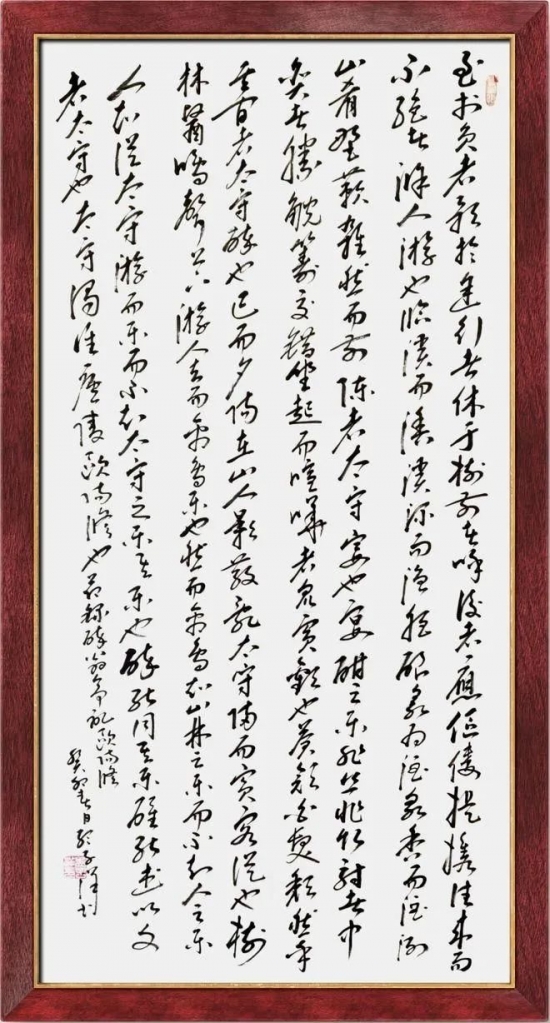 至於負者歌於塗行者休于樹前者呼後者應傴僂提攜往來而
不絕者滁人游也臨溪而漁溪深而漁肥釀泉為酒泉香而酒洌
山肴野蔌雜然而前陳者太守宴也宴酣之樂非絲非竹射者中
弈者勝觥籌交錯坐起而喧嘩者眾賓歡也蒼顏白髮頹然乎
其間者太守醉也已而夕陽在山人影散亂太守歸而賓客從也樹
林翳鳴聲上下游人去而禽鳥樂也然而禽鳥知山林之樂而不知人之樂
人知從太守游而樂而不知太守之樂其樂也醉能同其樂醒能述以文
者太守也太守謂誰廬陵歐陽修也節錄醉翁亭記歐陽修
癸卯春日書